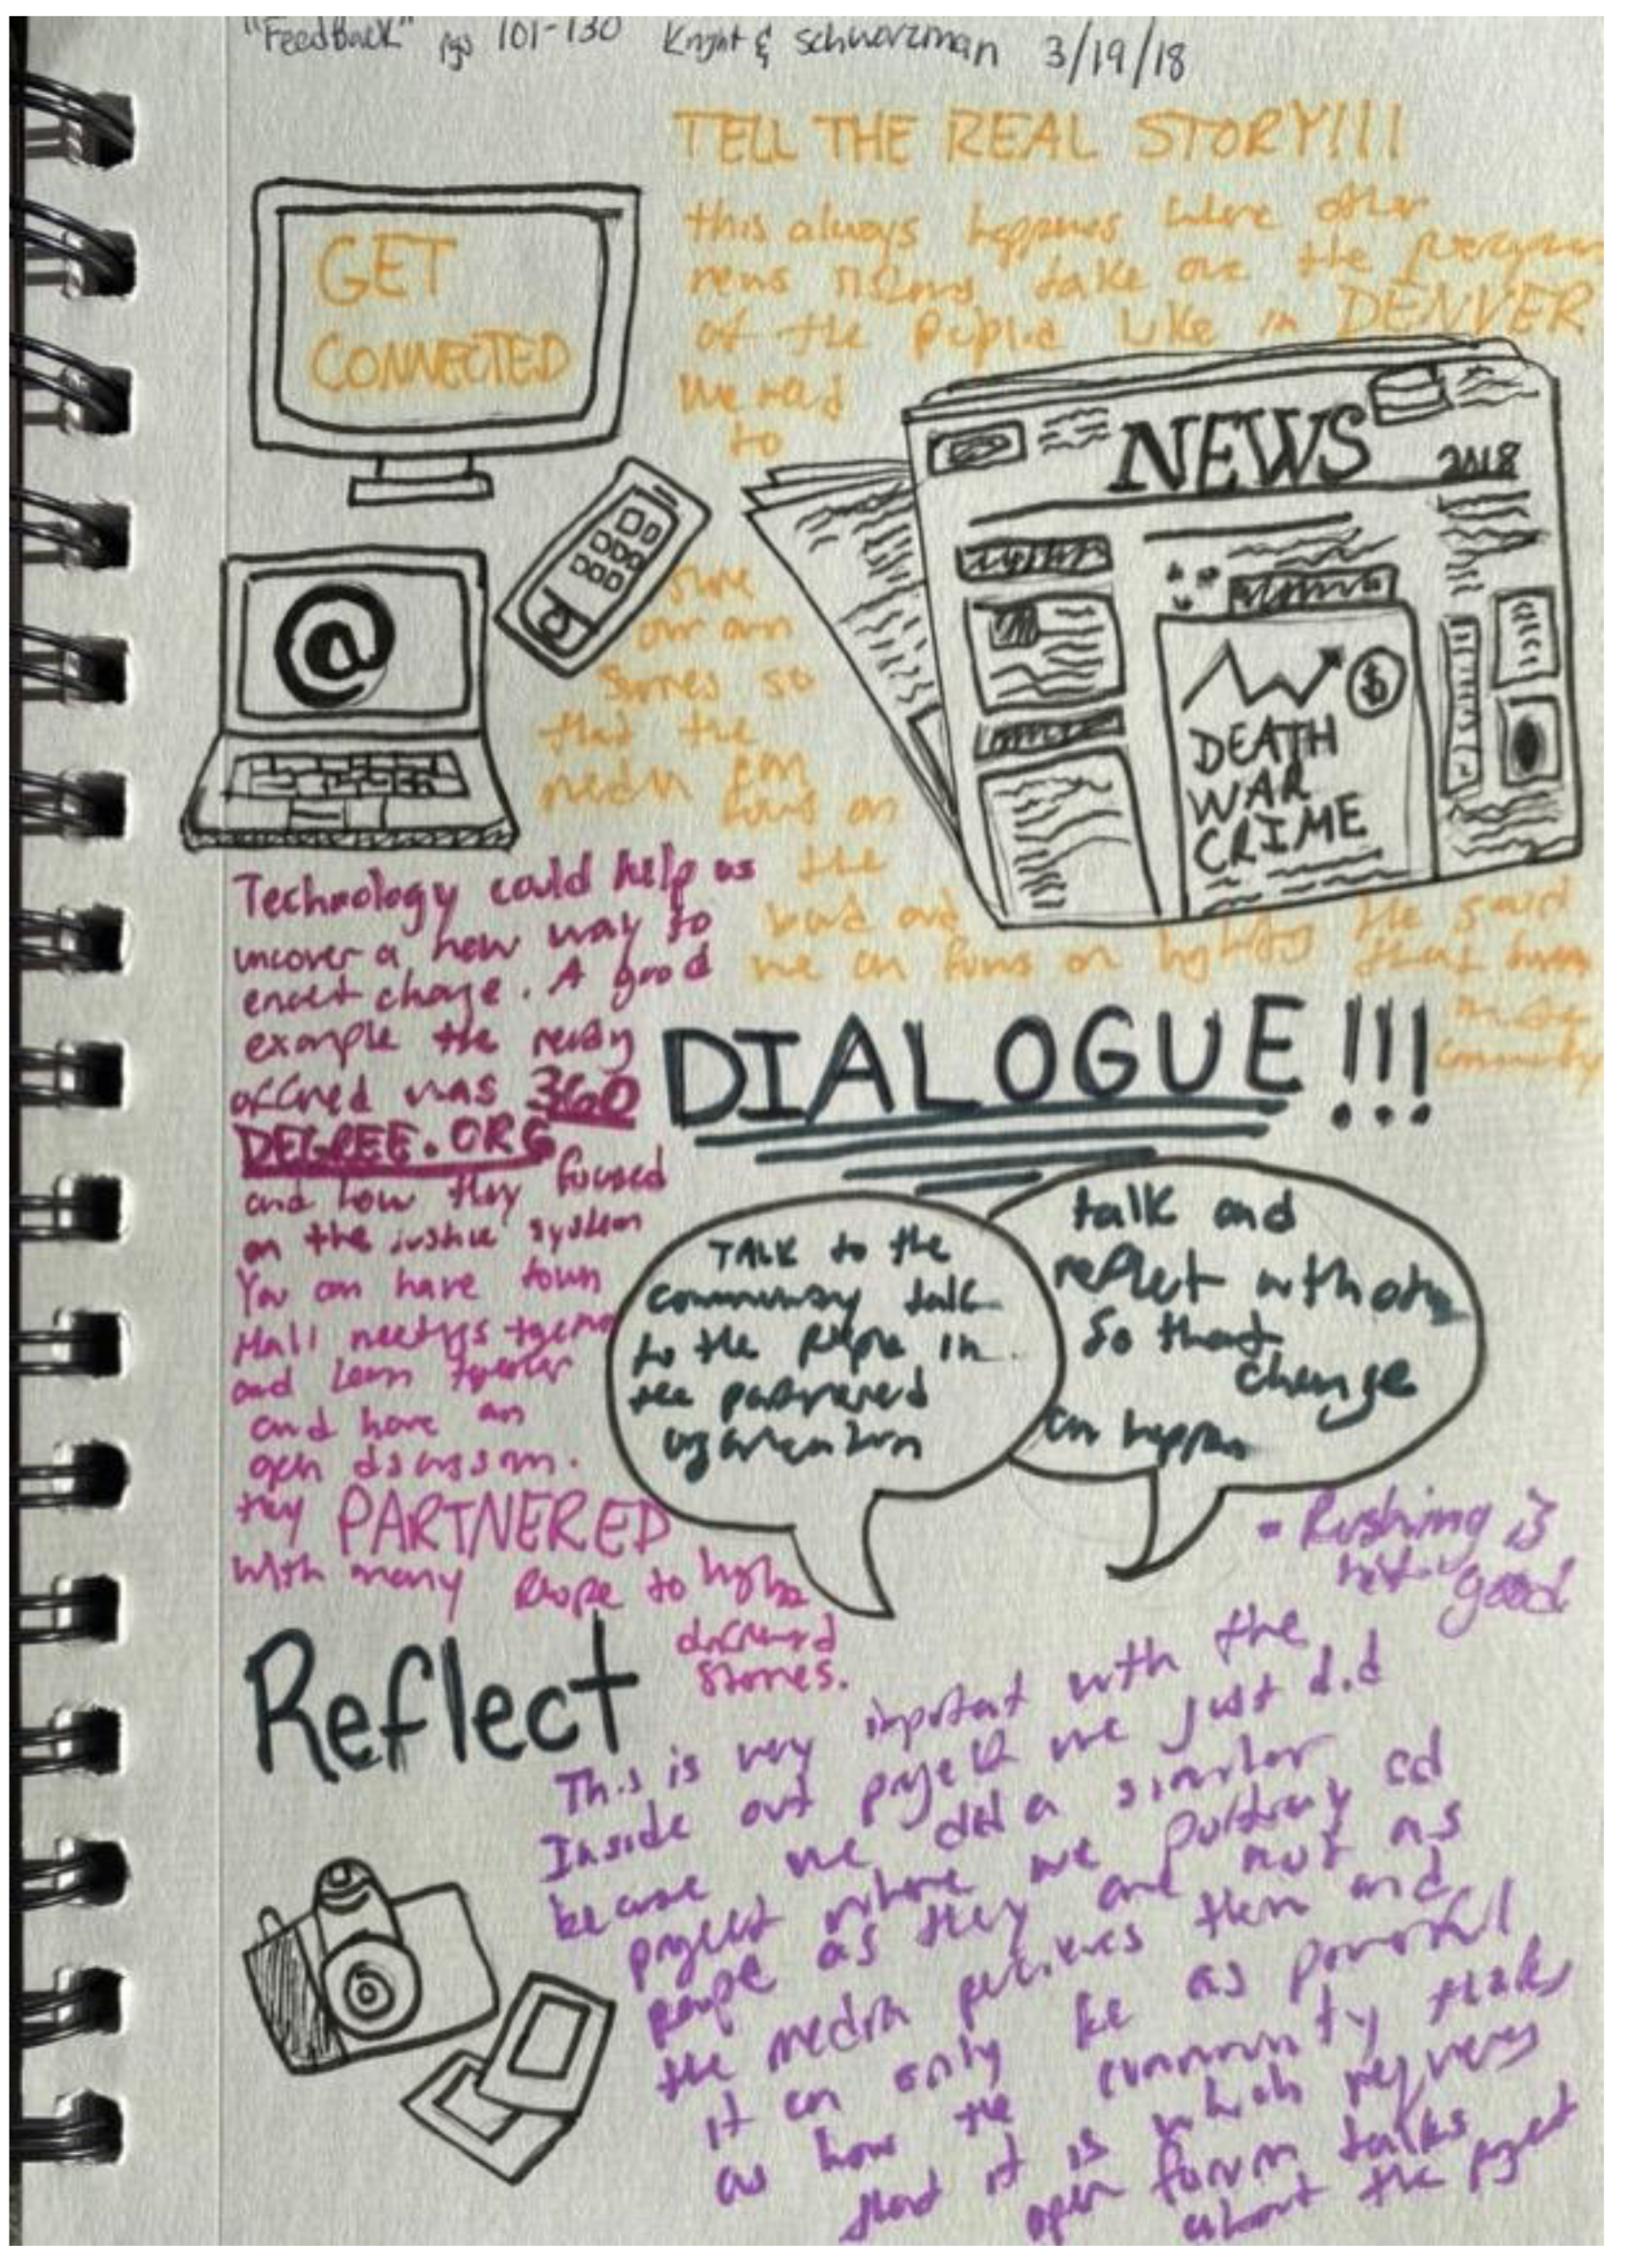 "FeedBack" pgs 101-130 Knight & Schwarzman 3/19/18
TELL THE REAL STORY!!!
this always happens where other
news take over the
of the people like in DENVER
We need
to
GET
CONNECTED
NEWS
2018
DEATH
WAR
CRIME
$
@
our own
stories so
that the
media can
focus on
the
bad and
we can focus on the good
that
community
Technology could help us
uncover a new way to
enact change. A good
example the reading
offered was 360
DEGREE.ORG
and how they focused
on the justice system
You can have town
Hall meetings together
and learn together
and have an
open discussion.
they PARTNERED
with many people to
stories.
DIALOGUE!!!
TALK to the
community talk
to the people in
the partnered
organization
talk and
reflect with others
so that
change
can happen
- Rushing is
good
Reflect
This is very important with the
Inside out project we just did
because we did a similar
project where we portray
people as they are not as
the media perceives them and
it can only be as powerful
as how the community thinks
that it is which requires
open forum talks
about the project